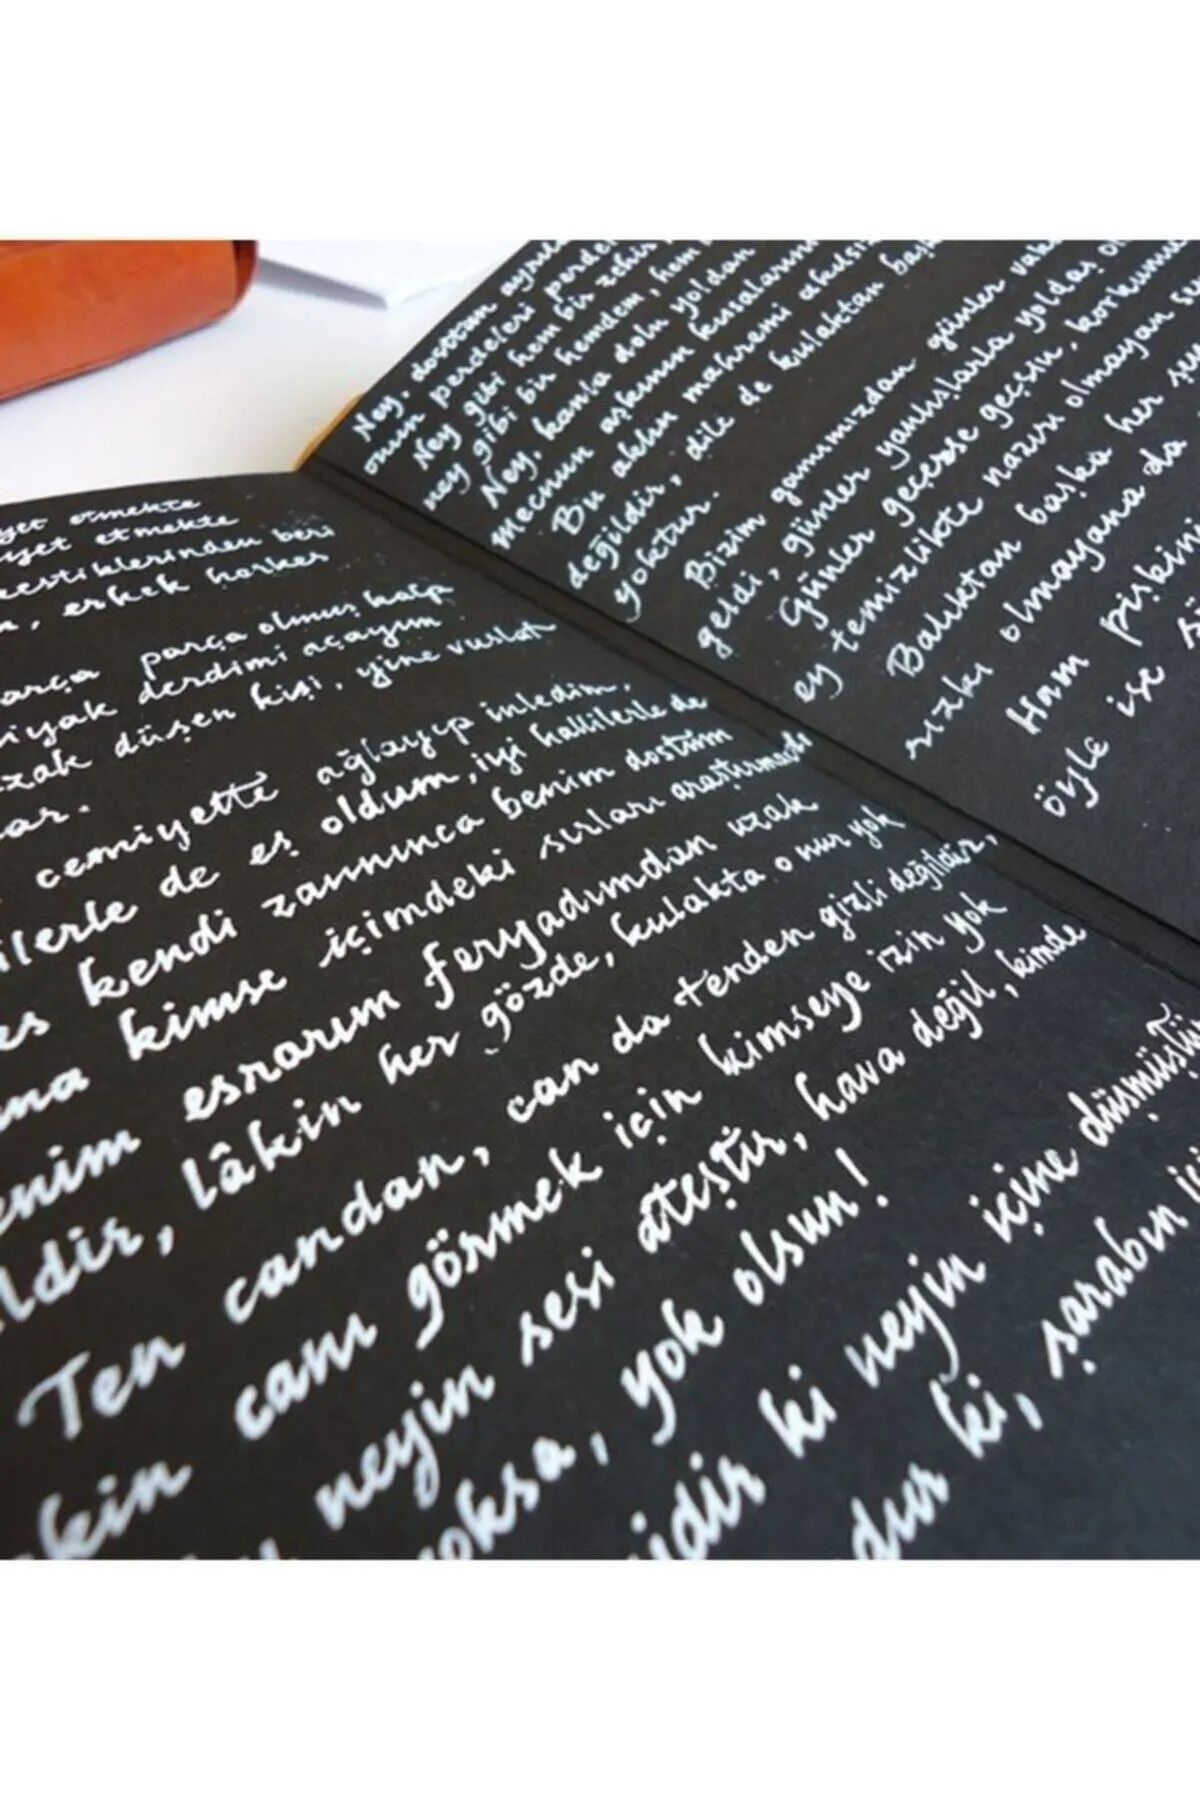 yet etmekte
yet etmekte
kestiklerinden beri
erkek herkes
parça olmuş kalp
iyak derdimi açayım
zak düşen kişi, yine vuslat
ar.
cemiyette ağlayıp inledim,
ilerle de eş oldum, iyi hallilerle de
es kendi zannınca benim dostum
ma kimse içimdeki sırları araştırmadı
enim esrarım feryadımdan uzak
ldir, lâkin her gözde, kulakta o nur yok
Ten candan, can da tenden gizli değildir,
kin canı görmek için kimseye izin yok
neyin sesi ateştir, hava değil, kimde
oksa, yok olsun!
idir ki neyin içine düşmüştü
dur ki, şarabın iç
Ney, dosttan ayrıl
onun perdeleri perde
Ney gibi hem bir zehir
ney gibi bir hemdem, hem
Ney, kanla dolu yoldan
mecnun aşkının kıssaların
Bu aklın mahremi akılsı
değildir, dile de kulaktan baş
yoktur.
Bizim gamımızdan günler vak
geldi, günler yanışlarla yoldaş o
Günler geçerse geçsin, korkumu
ey temizlikte naziri olmayan se
Balıktan başka her şey
rızkı olmayana da
Ham pişkin
öyle ise sö